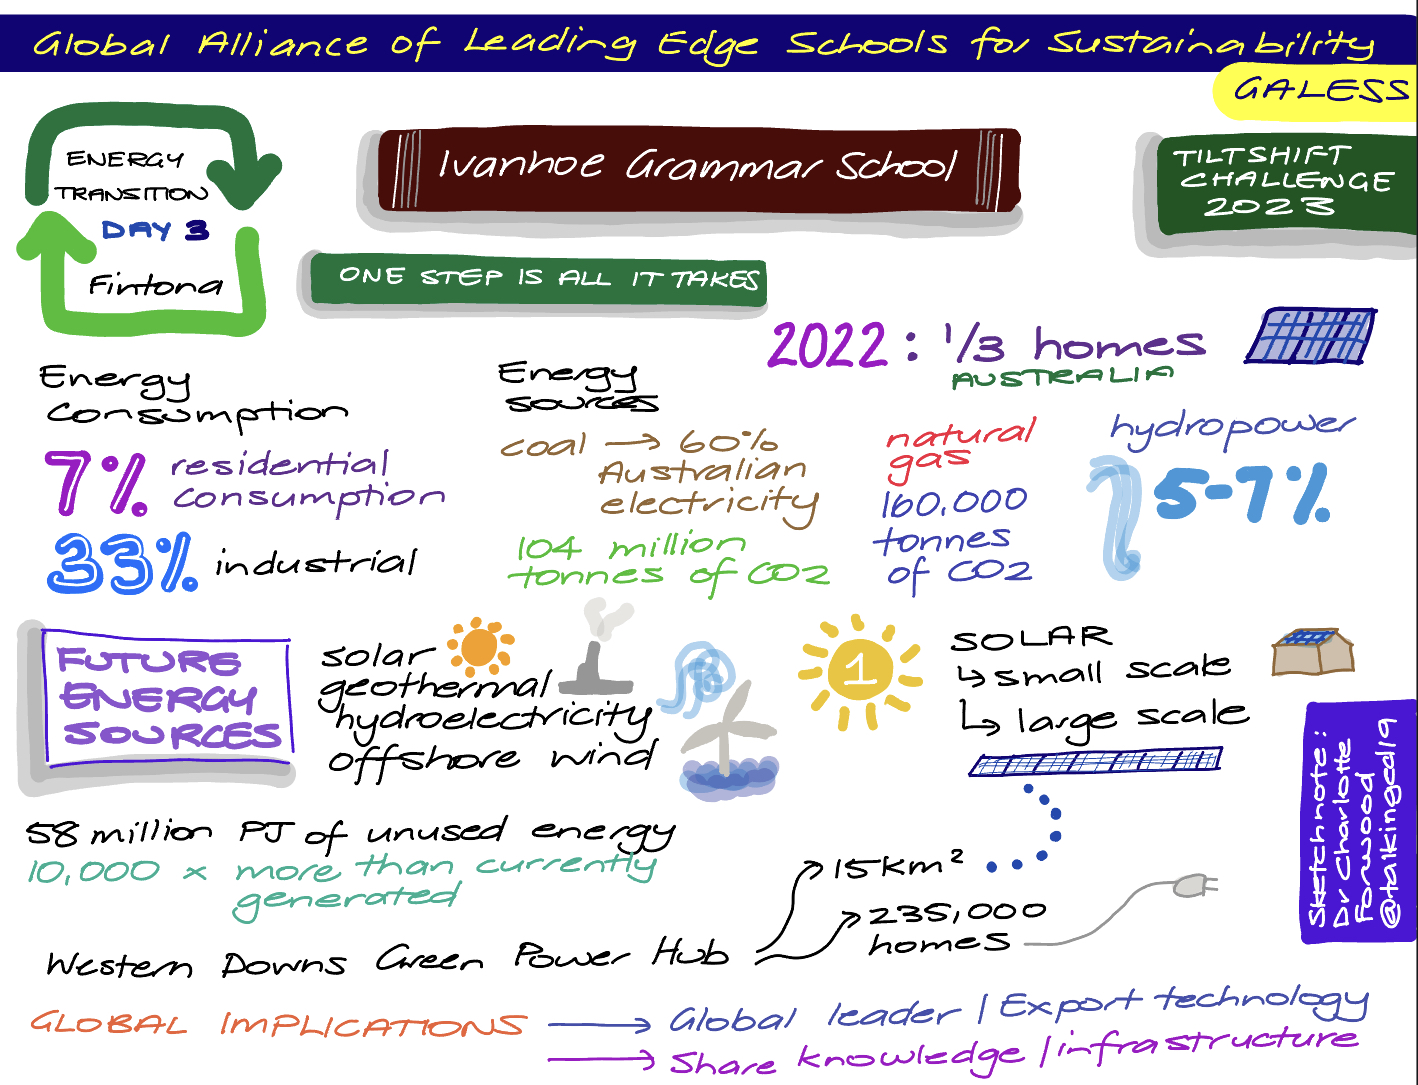 Global Alliance of Leading Edge Schools for Sustainability
GALESS
ENERGY
TRANSITION
DAY 3
Fintona
Ivanhoe Grammar School
TILTSHIFT
CHALLENGE
2023
ONE STEP IS ALL IT TAKES
2022 : 1/3 homes
AUSTRALIA
Energy
Consumption
7% residential
consumption
33% industrial
Energy
sources
coal → 60%
Australian
electricity
104 million
tonnes of CO2
natural
gas
160.000
tonnes
of CO2
hydropower
5-7%
FUTURE
ENERGY
SOURCES
solar
geothermal
hydroelectricity
offshore wind
1
SOLAR
↳ small scale
↳ large scale
58 million PJ of unused energy
10,000 x more than currently
generated
Western Downs Green Power Hub
15km²
235,000
homes
GLOBAL IMPLICATIONS
Global leader / Export technology
Share knowledge / infrastructure
Sketchnote:
Dr Charlotte
Forwood
@talkinged19